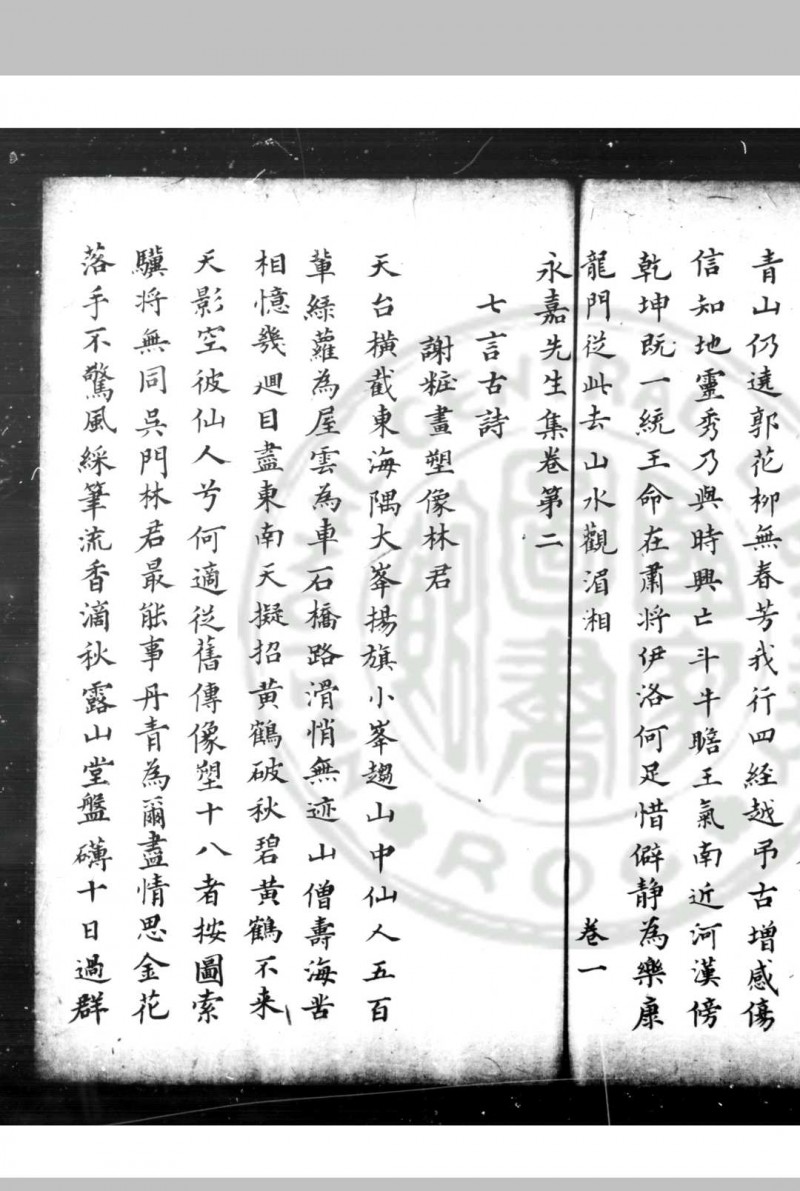 青山仍遶郭花柳無春芳我行四経越予古增感傷
信知地靈秀乃與時興亡斗牛瞻王氣南近河漢傍
乾坤既一統王命在肅將伊洛何足惜僻静為樂康
龍門從此去山水觀湄相
卷一
永嘉先生集卷第二
七言古詩
謝粧畫塑像林君
天台橫截東海隅大峯揚旗小峯趨山中仙人五百
輩緑蘿為屋雲為車石橋路滑悄無迹山僧壽海苦
相憶幾迴目盡東南天擬招黃鶴破秋碧黃鶴不来
天影空彼仙人兮何適從舊傳像塑十八者按圖索
驥将無同吳門林君最能事丹青為爾盡情思金花
落手不驚風綵筆流香滴秋露山堂盤礴十日過群
CENTRAL
國家圖書館
RO